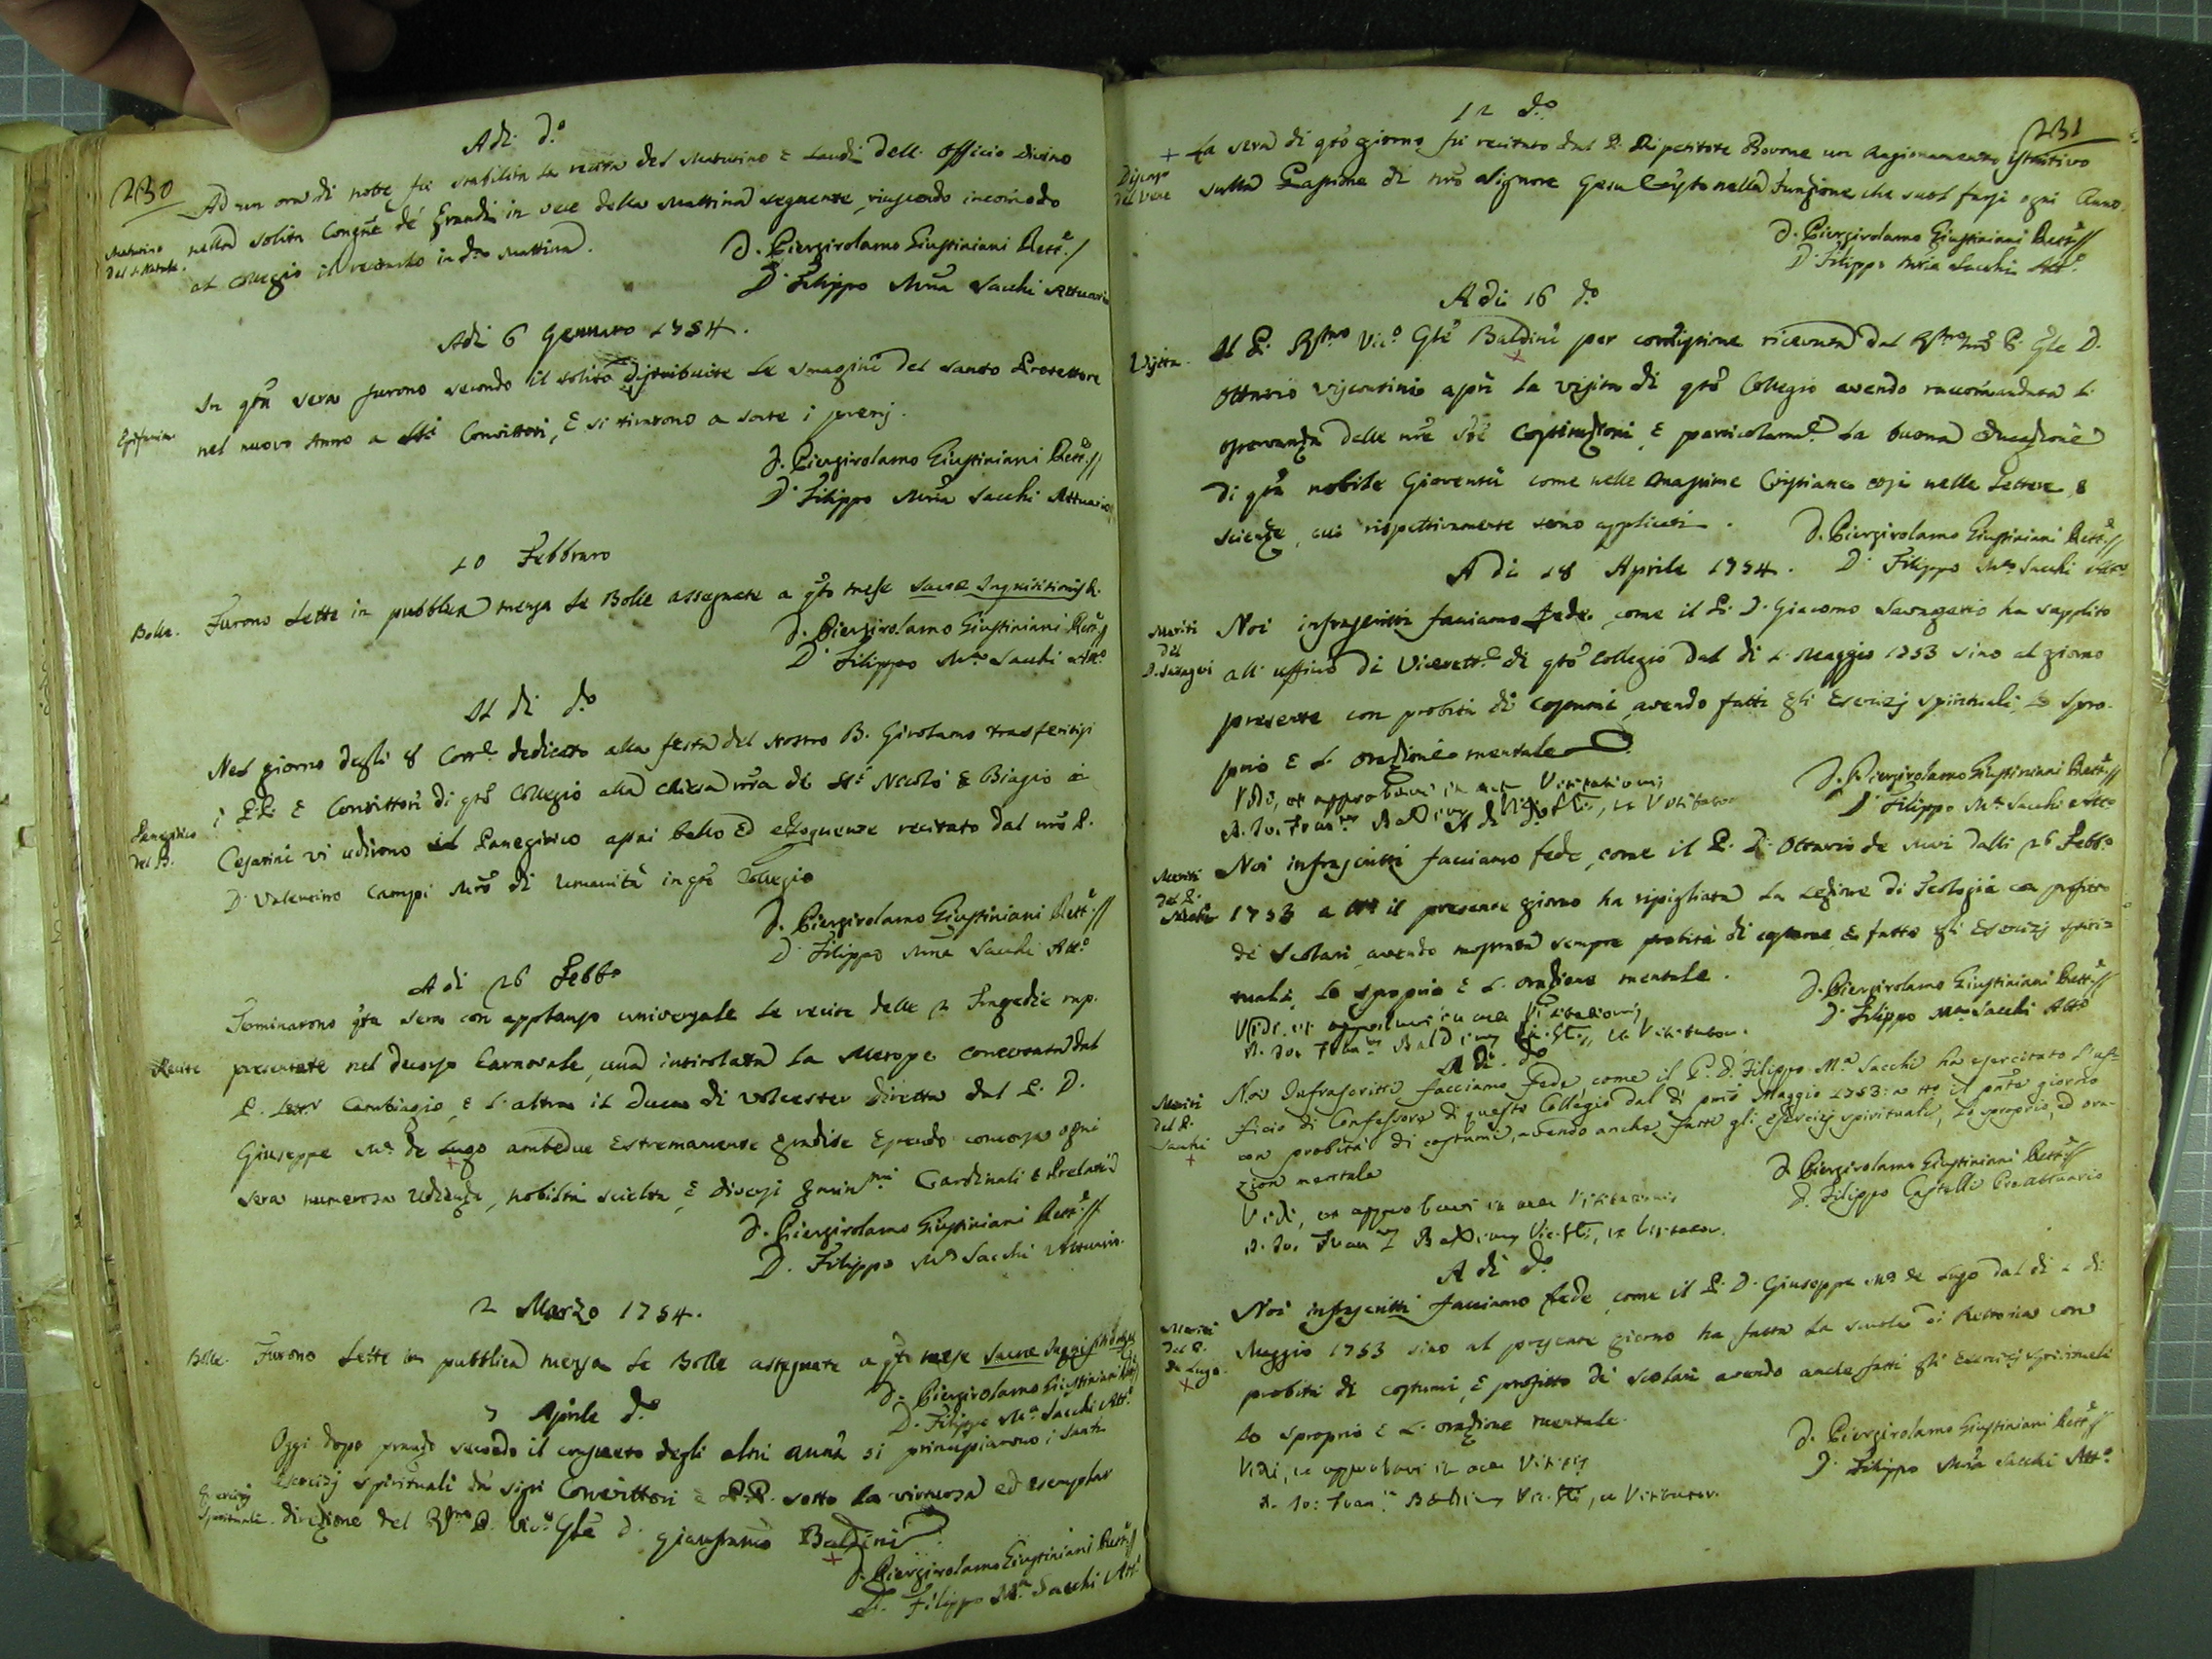 230
Adi d.o
Ad un ora di notte fu stabilita la recita del Matutino e Laudi dell' Officio Divino
Matutino
del S. Natale.
nella solita Congne de' Grandi in vece della Mattina seguente, riuscendo incomodo
al Collegio il recitarlo in d.a Mattina.
D. Piergirolamo Giustiniani Rett.e
D. Filippo Mria Sacchi Attuario
Adi 6 Gennaro 1754.
In qta sera furono secondo il solito distribuite le Imagini del Santo Protettore
Epifania
nel nuovo Anno a tti Convittori, e si tirarono a sorte i premj.
D. Piergirolamo Giustiniani Rett.e
D. Filippo Mria Sacchi Attuario
10 Febbraro
Bolle.
Furono lette in pubblica mensa le Bolle assegnate a qto mese Sacrae Inquisitionis &.
D. Piergirolamo Giustiniani Rett.e
D. Filippo Mra Sacchi Att.o
Al di d.o
Nel giorno degli 8 Corr.e dedicato alla festa del nostro B. Girolamo trasferitisi
i PP. e Convittori di qto Collegio alla Chiesa nra di Sti Nicolò e Biagio a
Panegirico
del B.
Cesarini vi udirono il Panegirico assai bello ed eloquente recitato dal nro P.
D. Valentino Campi Mro di Umanità in qto Collegio
D. Piergirolamo Giustiniani Rett.e
D. Filippo Mria Sacchi Att.o
Adi 26 Febb.o
Terminarono qta sera con applauso universale le recite delle 2 Tragedie rap-
Recite
presentate nel decorso Carnovale, una intitolata la Merope concertata dal
P. Carabiagio, e l'altra il Duca di Volcester diretta dal P. D.
Giuseppe Ma de Lugo ambedue estremamente gradite essendo concorsa ogni
sera numerosa Udienza, nobiltà scielta, e diversi Eminmi Cardinali e Prelati
D. Piergirolamo Giustiniani Rett.e
D. Filippo Ma Sacchi Attuario.
2 Marzo 1754.
Bolle.
Furono lette in pubblica mensa le Bolle assegnate a qto mese Sacrae Inquisitionis &
D. Piergirolamo Giustiniani Rett.e
D. Filippo Ma Sacchi Att.o
7 Aprile d.o
Oggi dopo pranzo secondo il consueto degli altri anni si principiarono i Santi
Esercizj
Spirituali.
Esercizj spirituali da sigri Convittori e P.P. sotto la virtuosa ed esemplar
direzione del Rmo P. Vic.o Gle D. Gianfranco Baldini
D. Piergirolamo Giustiniani Rett.e
D. Filippo Ma Sacchi Att.o
231
12 d.o
+ La sera di qto giorno fu recitato dal P. Ripetitore Bovone un Ragionamento istruttivo
Discorso
del Vene
sulla Passione di nro Signore Gesu Cristo nella funzione che suol farsi ogni Anno.
D. Piergirolamo Giustiniani Rett.e
D. Filippo Mria Sacchi Att.o
Adi 16 d.o
Visita.
Il P. Rmo Vic.o Gle Baldini per comissione ricevuta dal Rmo nro P. Gle D.
Ottavio Viscontini aprì la visita di qto Collegio avendo raccomandata l'
osservanza delle nre Ste Costituzioni, e particolarme la buona educazione
di qta nobile Gioventù come nelle massime Cristiane così nelle lettere, e
scienze, cui rispettivamente sono applicati.
D. Piergirolamo Giustiniani Rett.e
D. Filippo Ma Sacchi Att.o
Adi 18 Aprile 1754.
Meriti
del
D. Savageri
Noi infrascritti facciamo fede, come il P. D. Giacomo Savagerio ha supplito
all' uffizio di Vicerett.e di qto Collegio dal di 1. Maggio 1753 sino al giorno
presente con probità di costumi, avendo fatti gli Esercizj spirituali, lo spro-
prio e l'orazione mentale
Vidi, et approbavi in actu Visitationis
D. Jo: Franc.us Baldinus Vic. Glis, et Visitator
D. Piergirolamo Giustiniani Rett.e
D. Filippo Ma Sacchi Att.o
Adi d.o
Meriti
del P.
Muri
Noi infrascritti facciamo fede, come il P. D. Ottavio de Muri dalli 26 Febb.o
1753 a tto il presente giorno ha ripigliata la lezione di Teologia con profitto
de' Scolari, avendo mostrata sempre probità di costume e fatto gli Esercizj spiri=
tuali, lo sproprio e l'orazione mentale.
Vidi, et approbavi in actu Visitationis
D. Jo: Franc.us Baldinus Vic. Glis, et Visitator.
D. Piergirolamo Giustiniani Rett.e
D. Filippo Ma Sacchi Att.o
Adi d.o
Meriti
del P.
Sacchi
+
Noi Infrascritti facciamo fede come il P. D. Filippo Ma Sacchi ha esercitato l'uf-
ficio di Confessore di questo Collegio dal dì pmo Maggio 1753: a tto il pnte giorno
con probità di costumi, avendo anche fatti gli esercizj spirituali, lo sproprio, ed ora-
zion mentale
D. Piergirolamo Giustiniani Rett.e
D. Filippo Castelli Proattuario
Vidi, et approbavi in actu Visitationis
D. Jo: Franc.us Baldinus Vic. Glis, et Visitator.
A di d.o
Meriti
del P.
de Lugo.
+
Noi infrascritti facciamo fede, come il P. D. Giuseppe Ma de Lugo dal di 1 di
Maggio 1753 sino al presente giorno ha fatta la scuola di Rettorica con
probità di costumi, e profitto di scolari avendo anche fatti gli Esercizj spirituali
lo sproprio e l'orazione mentale.
D. Piergirolamo Giustiniani Rett.e
D. Filippo Mria Sacchi Att.o
Vidi, et approbavi in actu Visitis
D. Jo: Franc.us Baldinus Vic. Glis, et Visitator.